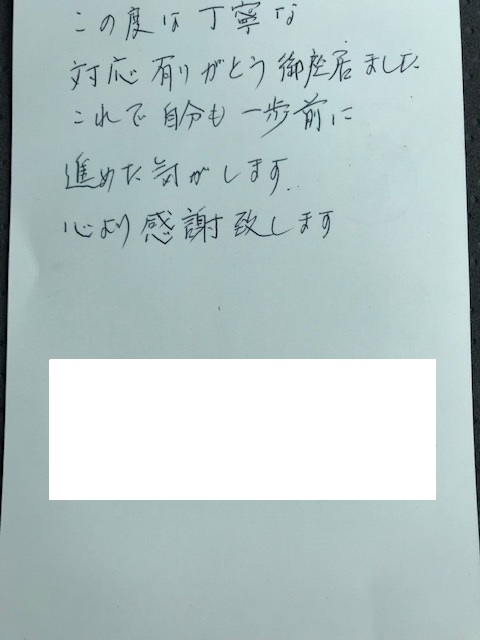 この度は丁寧な
対応有りがとう御座居ました
これで自分も一歩前に
進めた気がします
心より感謝致します